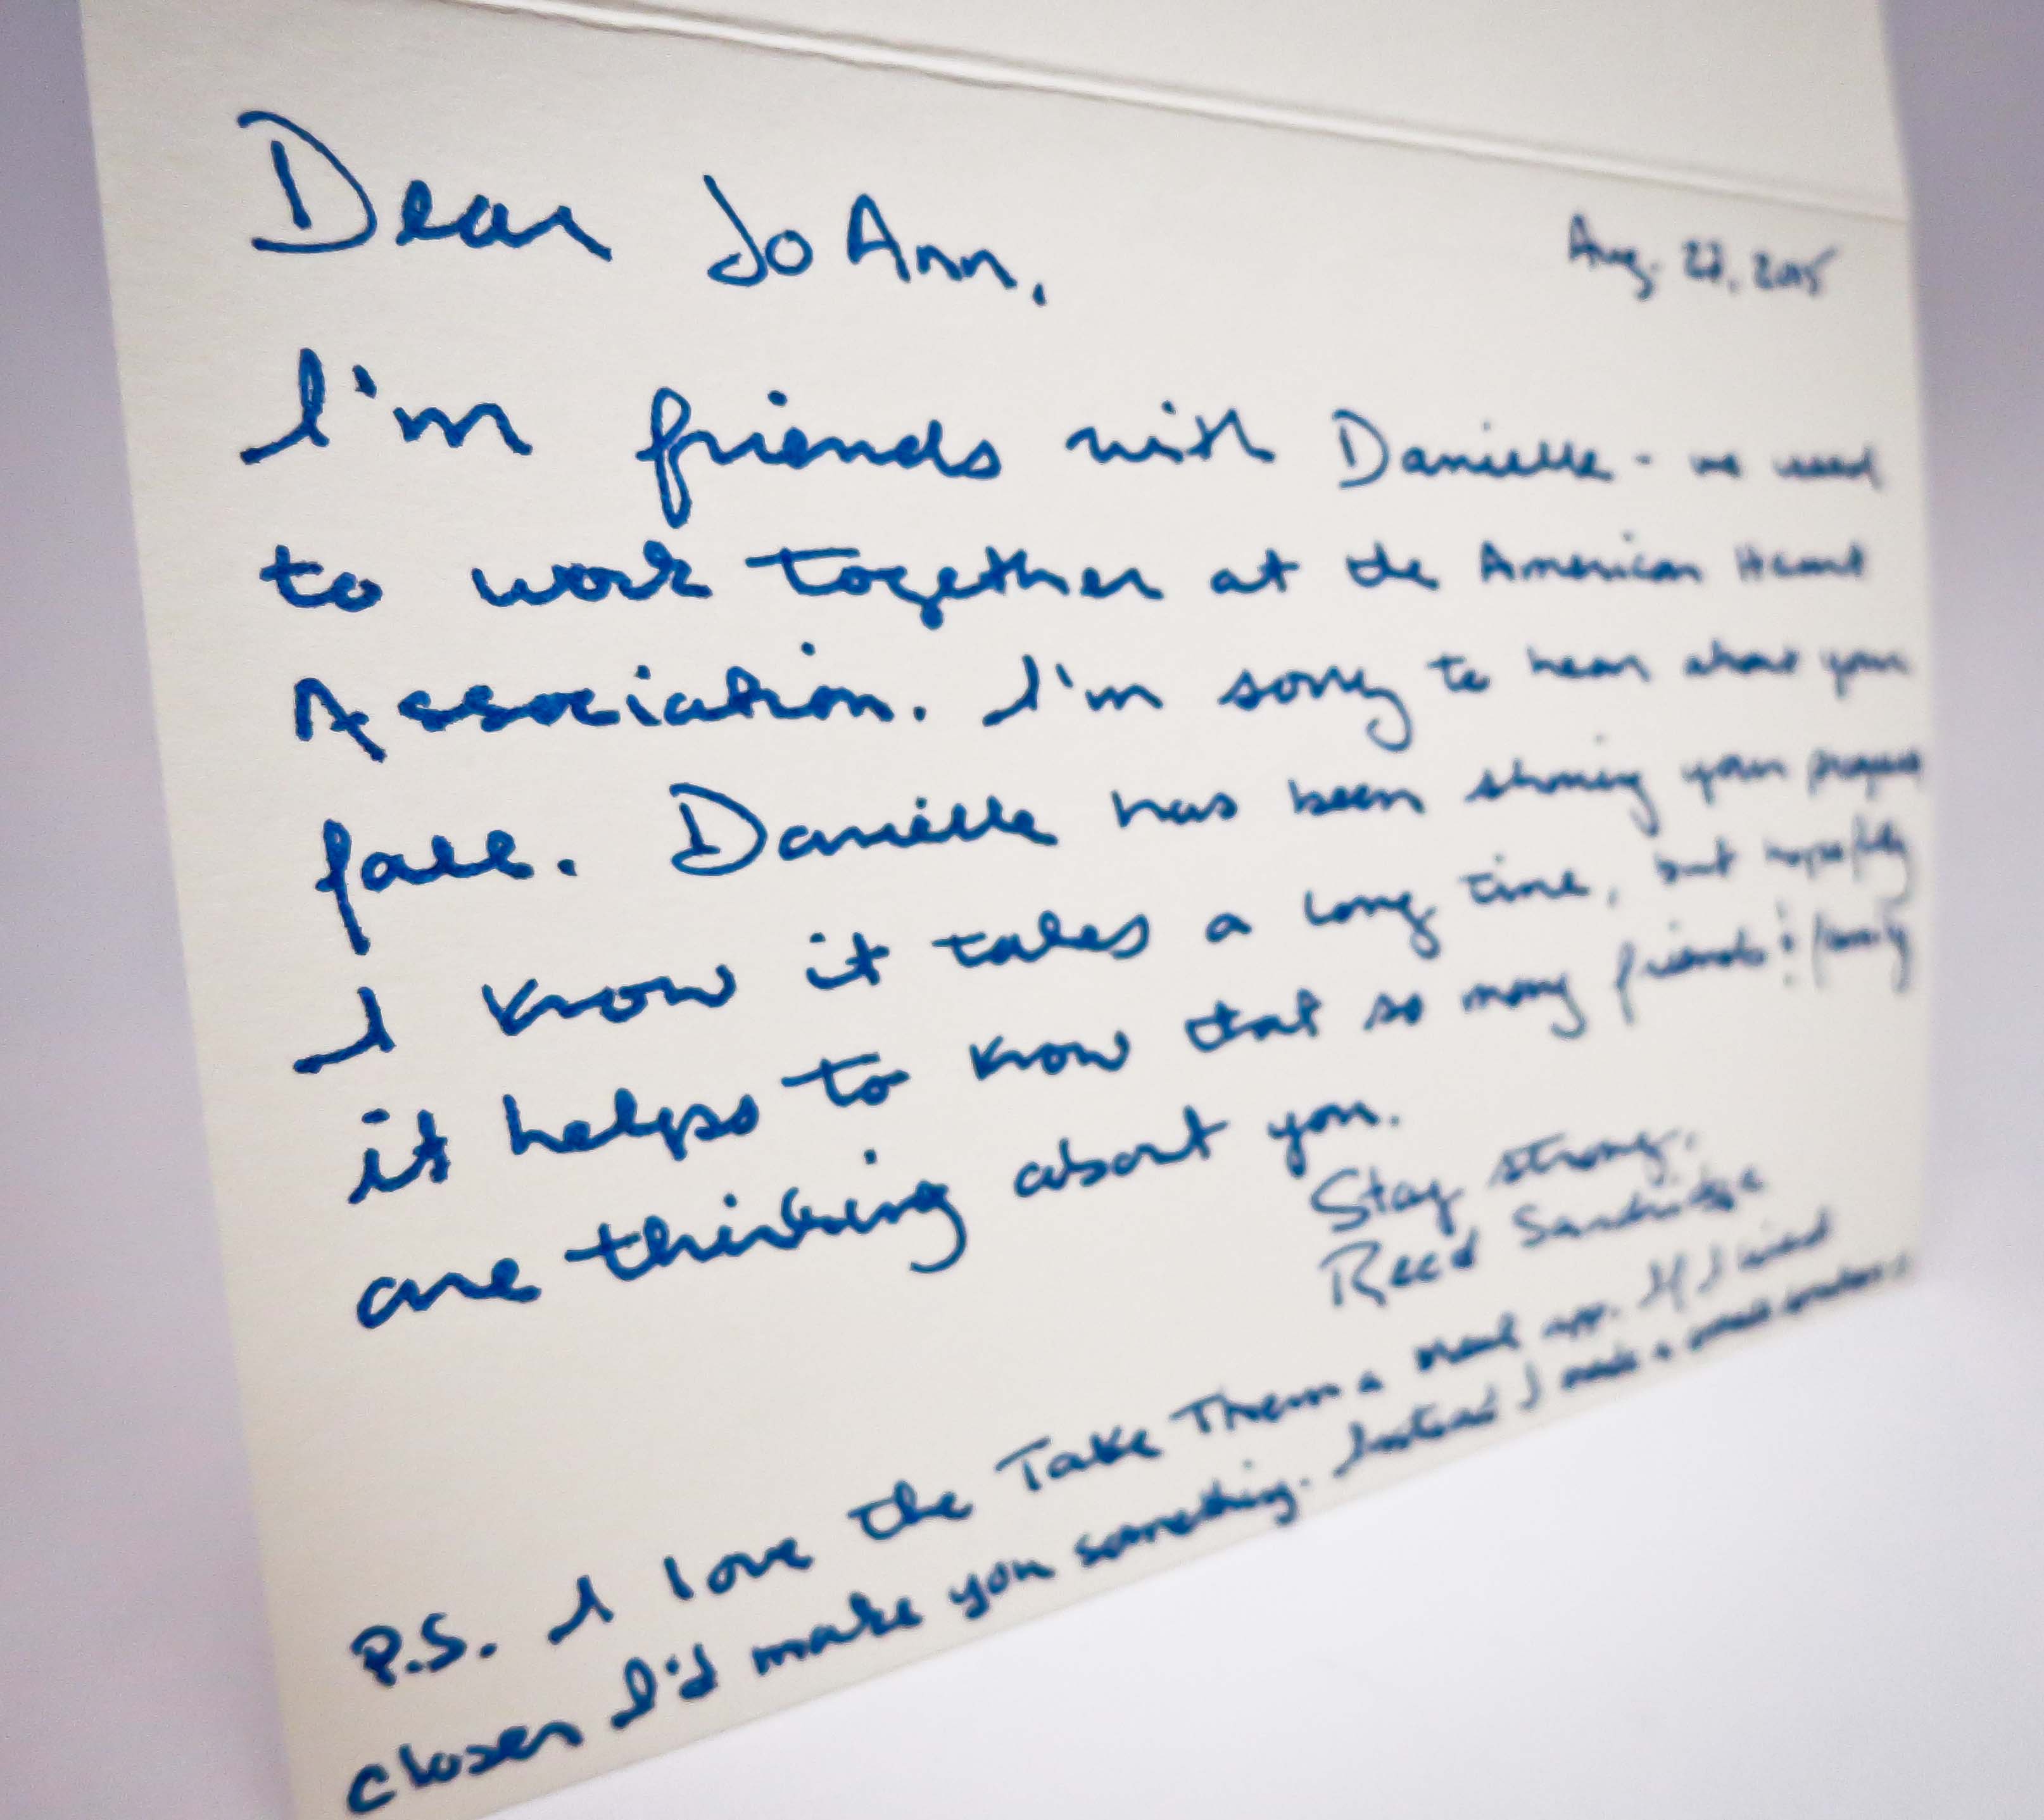 Dear JoAnn,
Aug. 27, 2015
I'm friends with Danielle - we used
to work together at the American Heart
Association. I'm sorry to hear about your
fall. Danielle has been sharing your progress
I know it takes a long time, but hopefully
it helps to know that so many friends & family
are thinking about you.
Stay strong,
Reed
P.S. I love the Take Them a Meal app. If I lived
closer I'd make you something. Instead I made a